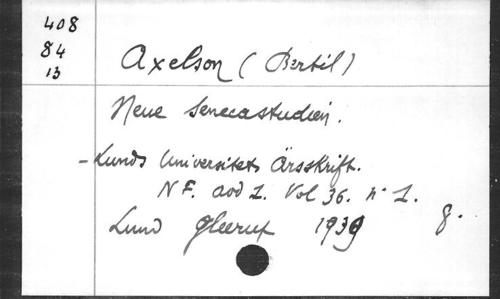 408
84
13
Axelson (Bertil)
Neue Senecastudien.
- Lunds Universitets Årsskrift.
N F. avd 1. Vol 36. nº 1.
Lund Gleerup 1939 8.